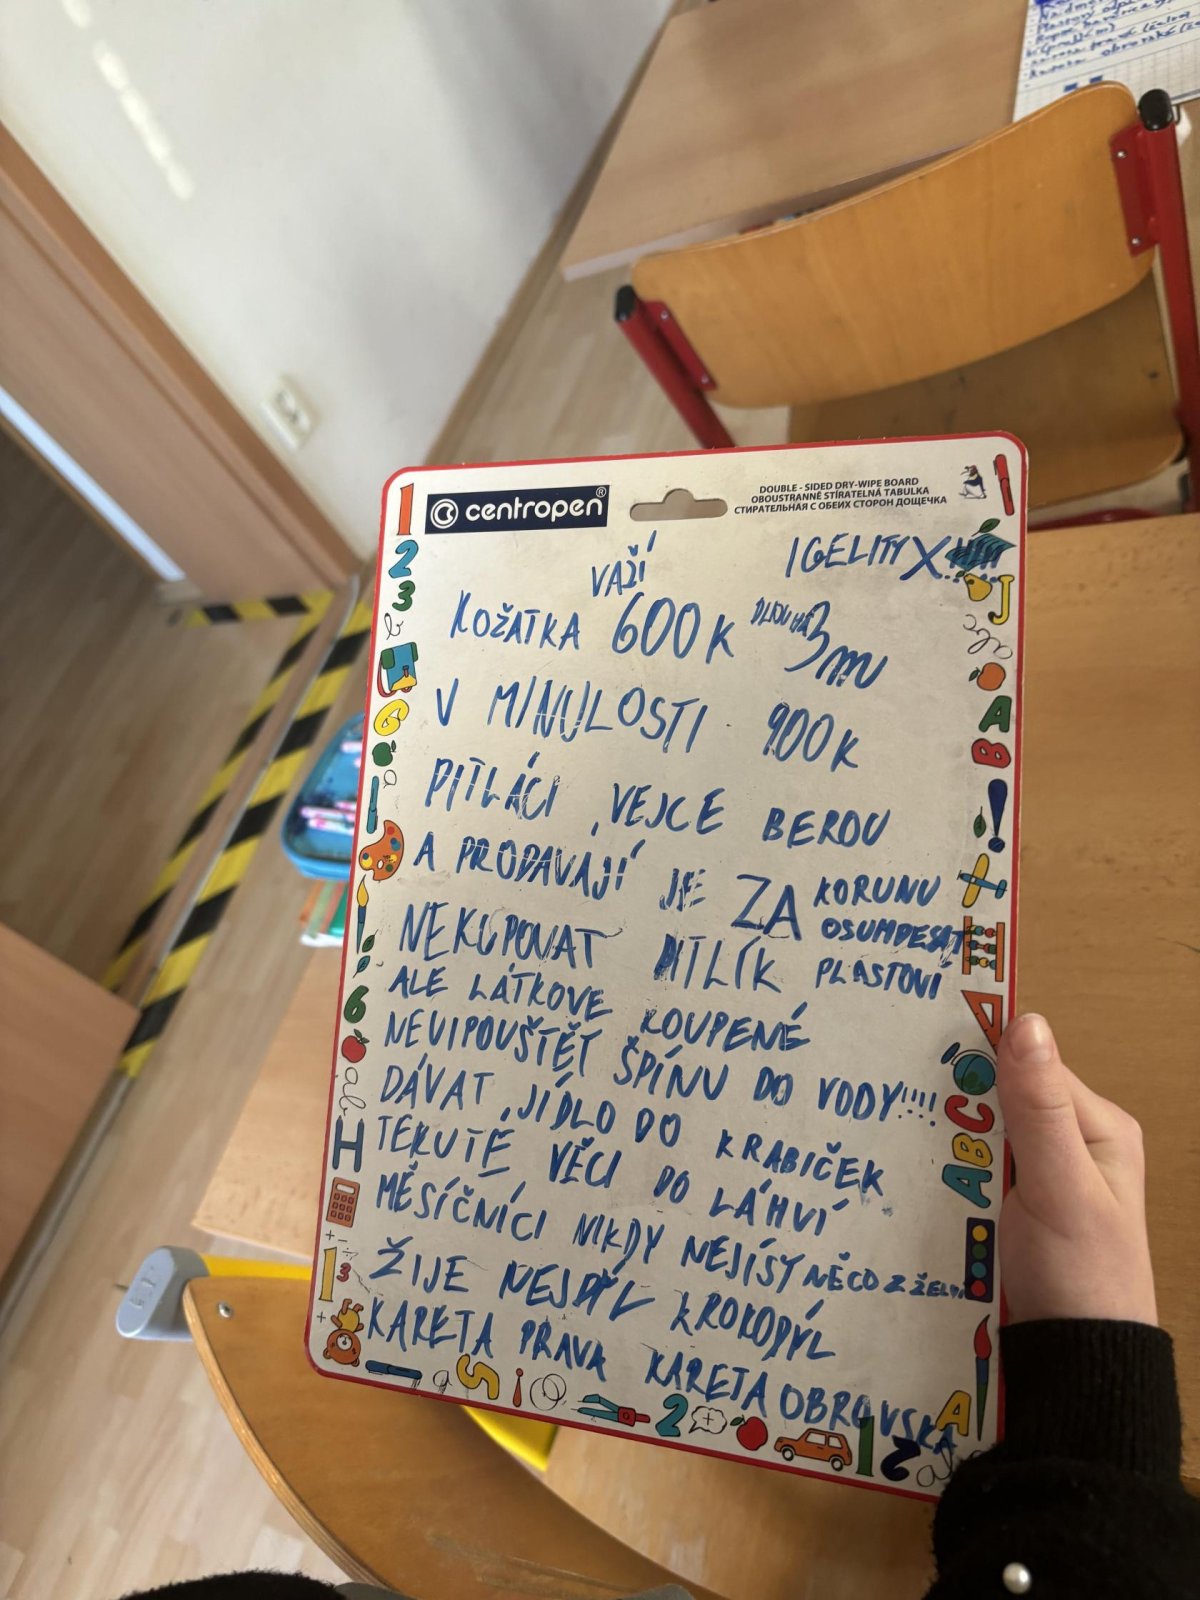 centropen®
DOUBLE - SIDED DRY-WIPE BOARD
OBOUSTRANNĚ STÍRATELNÁ TABULKA
СТИРАТЕЛЬНАЯ С ОБЕИХ СТОРОН ДОЩЕЧКА
IGELITY X
VAŽÍ
KOŽATKA 600K DLOUHÁ 3m
V MINULOSTI 900K
PITLÁCI VEJCE BEROU
A PRODAVAJÍ JE ZA KORUNU
OSUMDESAT
NEKUPOVAT PITLÍK PLASTOVÍ
ALE LÁTKOVE KOUPENÉ
NEVIPOUŠTĚT ŠPÍNU DO VODY!!!!
DÁVAT JÍDLO DO KRABIČEK
TEKUTÉ VĚCI DO LÁHVÍ
MĚSÍČNÍCI NIKDY NEJÍSY NĚCO Z ŽELVI
ŽIJE NEJDÝL KROKODÝL
KARETA PRAVA KARETA OBROVSKA